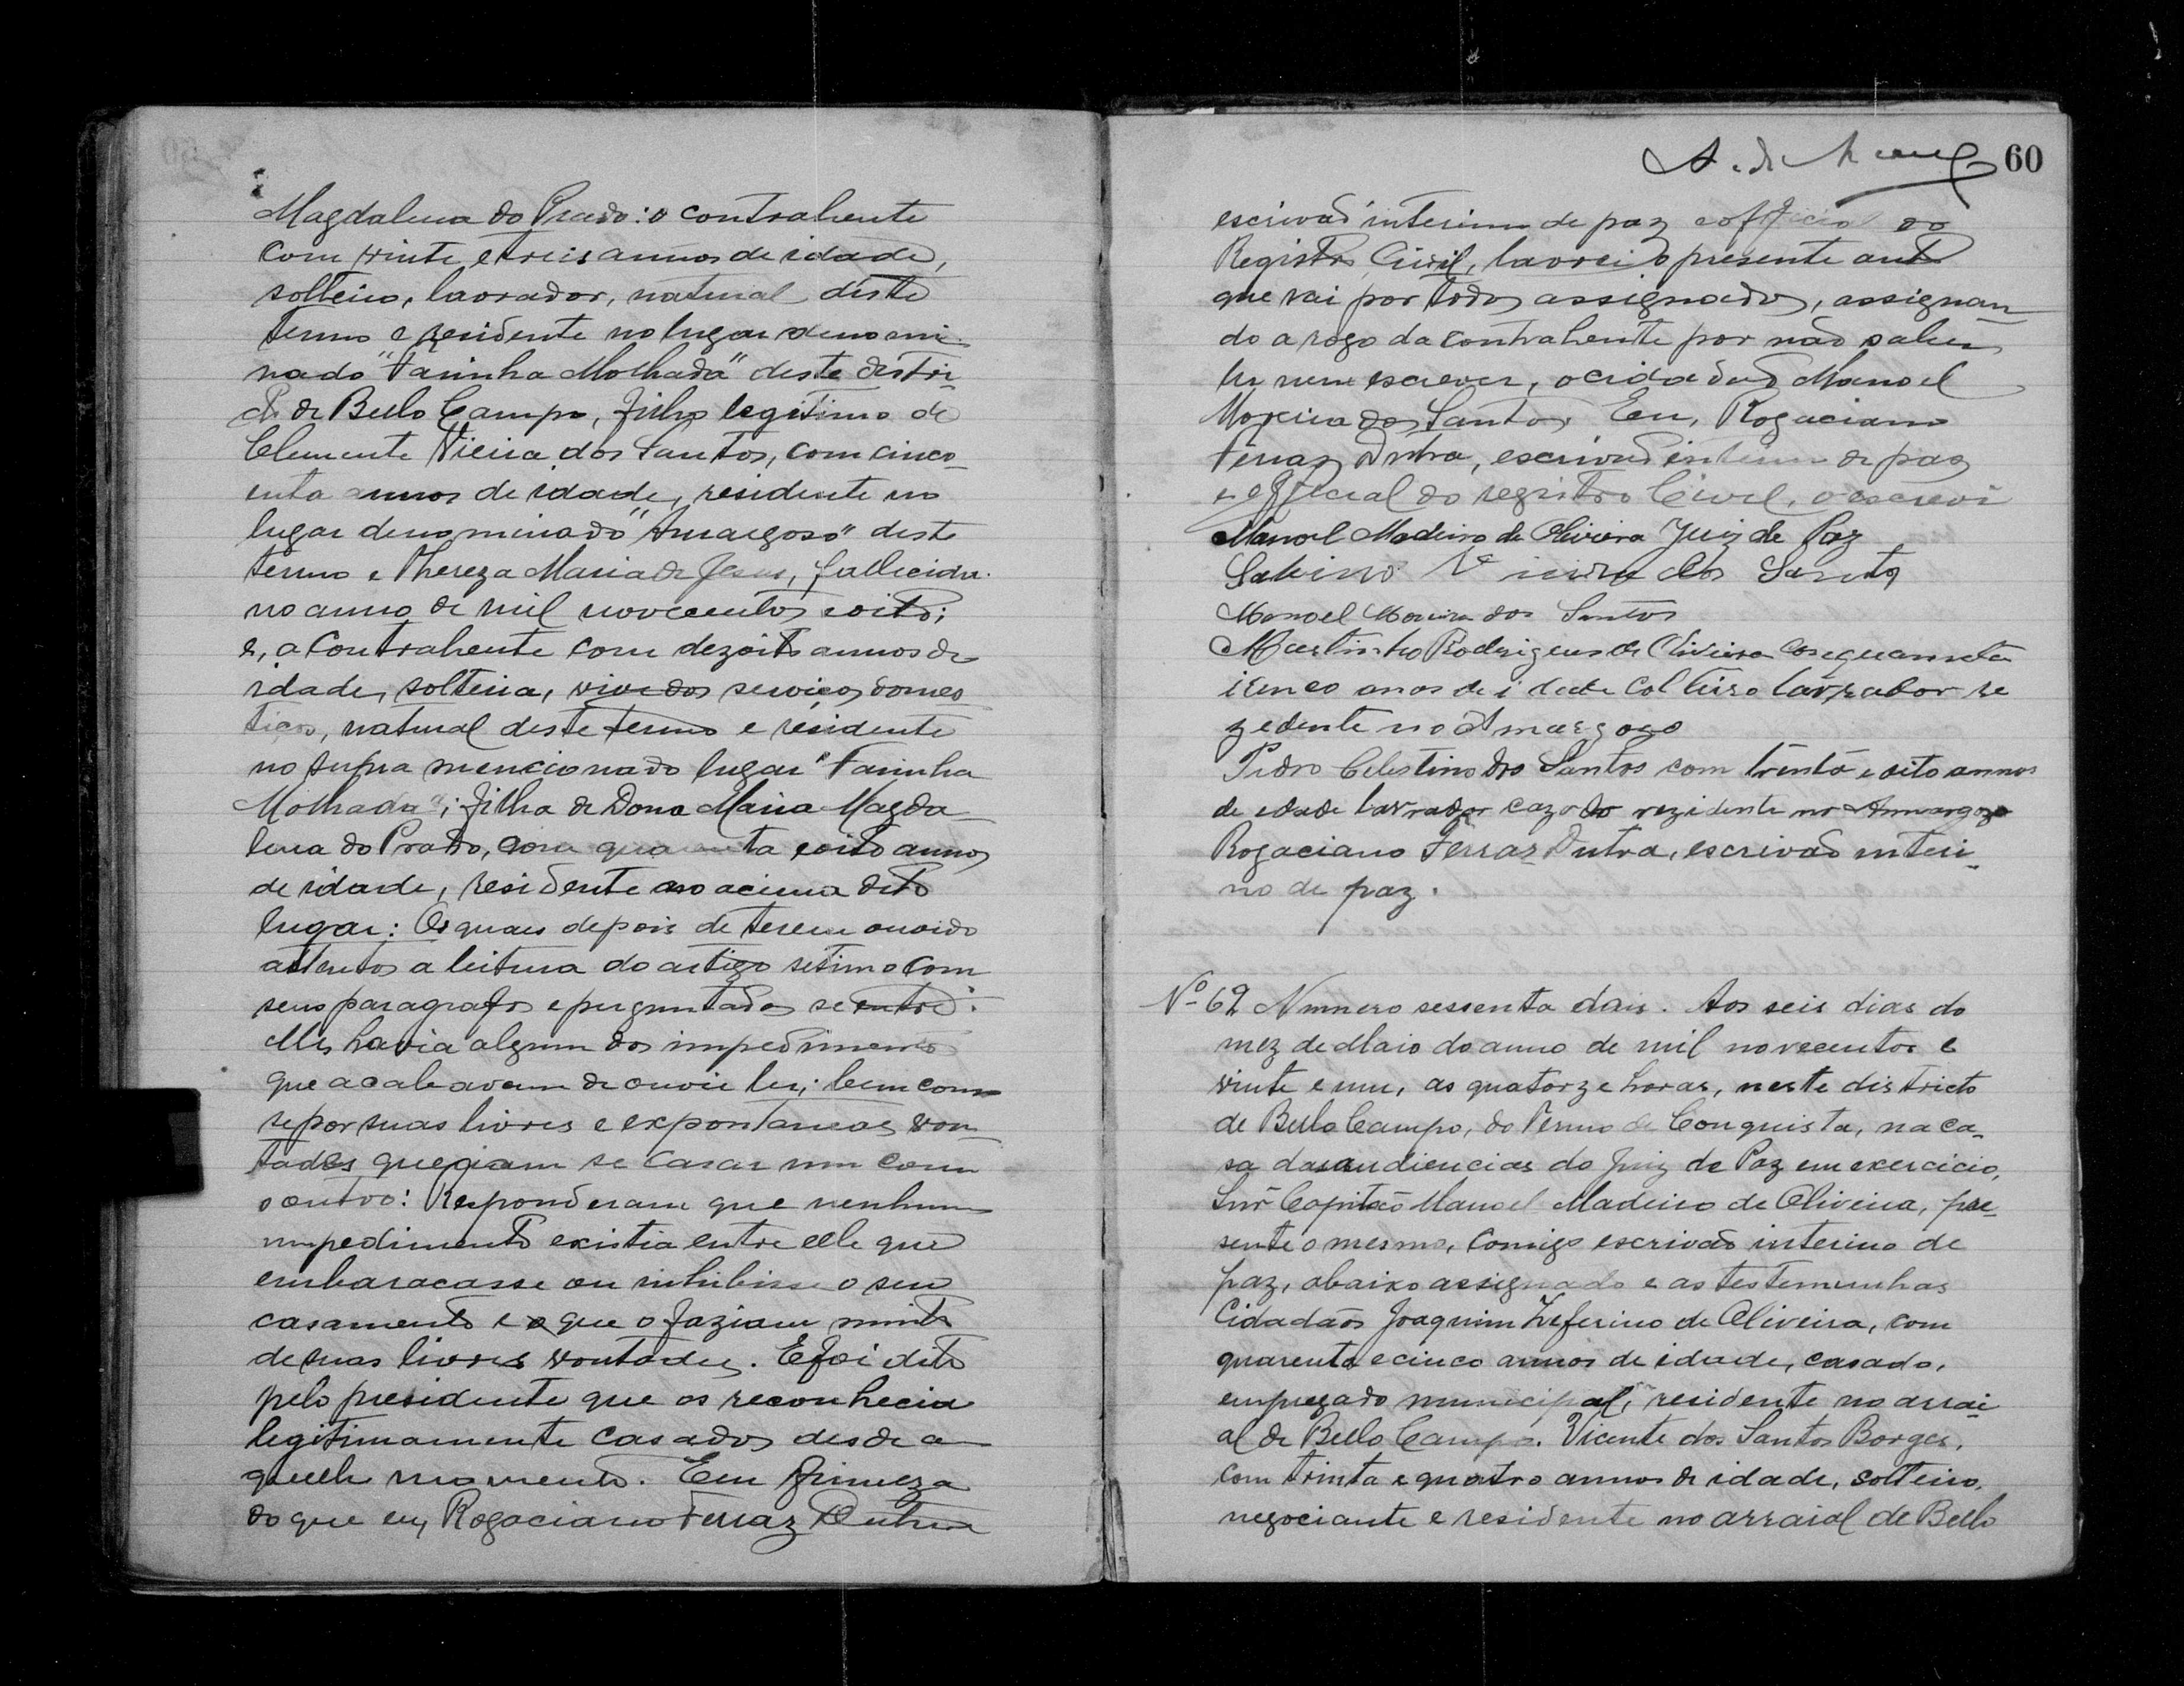 Magdalena do Prado: o contrahente
com vinte e treis annos de idade,
solteiro, lavrador, natural deste
termo e residente no lugar denomi-
nado "Farinha Molhada" deste distri-
cto de Bello Campo, filho legitimo de
Clemente Vieira dos Santos, com cinco-
enta annos de idade, residente no
lugar denominado "Amargoso" deste
termo e Thereza Maria de Jesus, fallecida
no anno de mil novecentos e oito;
e, a contrahente com dezoito annos de
idade, solteira, vive dos serviços domes
ticos, natural deste termo e residente
no supra mencionado lugar "Farinha
Molhada"; filha de Dona Maria Magda
lena do Prado, com quarenta e oito annos
de idade, residente no acima dito
lugar: Os quaes depois de terem ouvido
attentos a leitura do artigo setimo com
seus paragrafos e perguntados se entre
elles havia algum dos impedimentos
que acabavam de ouvir ler; bem como
se por suas livres e expontaneas von
tades queriam se casar um com
o outro: Responderam que nenhum
impedimento existia entre elle que
embaracasse ou inhibisse o seu
casamento e que o faziam muito
de suas livres vontades. E foi dito
pelo presidente que os reconhecia
legitimamente casados desde a
quelle momento. Em firmeza
do que eu, Rogaciano Ferraz Dutra
60
escrivaõ interino de paz e official do
Registro Civil, lavrei o presente auto
que vai por todos assignados, assignan
do a rogo da contrahente por naõ saber
ler nem escrever, o cidadaõ Manoel
Moreira dos Santos. Eu, Rogaciano
Ferraz Dutra, escrivaõ interino de paz
e official do registro Civil, o escrevi
Manoel Madeiro de Oliveira Juiz de Paz
Sabino Vieira dos Santos
Manoel Moreira dos Santos
Martinho Rodrigues de Oliveira con quarenta
icinco anos de idade colteiro lavrador re
zedente no Amargoso
Pedro Celestino dos Santos com trinta e oito annos
de edade lavrador cazado rezidente no Amargozo
Rogaciano Ferraz Dutra, escrivaõ interi-
no de paz.
Nº 62 Numero sessenta e dois. Aos seis dias do
mez de Maio do anno de mil novecentos e
vinte e um, as quatorze horas, neste districto
de Bello Campo, do Termo de Conquista, na ca-
sa das audiencias do Juiz de Paz em exercicio,
Snr Capitaõ Manoel Madeiro de Oliveira, pre-
sente o mesmo, comigo escrivaõ interino de
paz, abaixo assignado e as testemunhas
Cidadaõs Joaquim Zeferino de Oliveira, com
quarenta e cinco annos de idade, casado,
empregado municipal, residente no arrai
al de Bello Campo. Vicente dos Santos Borges,
com trinta e quatro annos de idade, solteiro,
negociante e residente no arraial de Bello